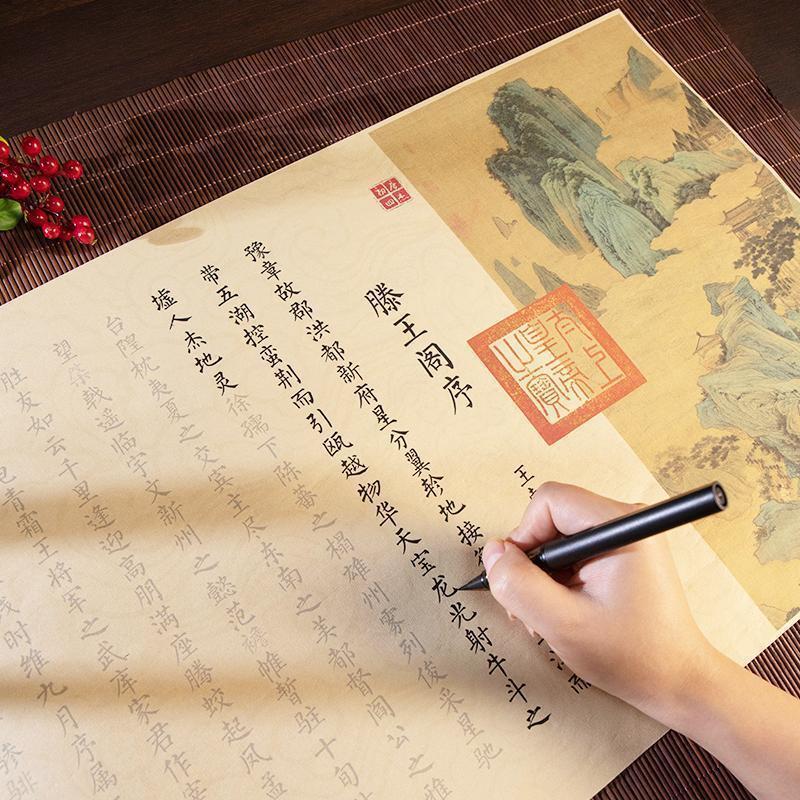 太上
皇帝
之寶
滕王阁序
王
豫章故郡洪都新府星分翼轸地接
而
带五湖控蛮荆而引瓯越物华天宝龙光射牛斗之
墟人杰地灵徐孺下陈蕃之榻雄州雾列俊采星驰
台隍枕夷夏之交宾主尽东南之美都督阎公之雅
望棨戟遥临宇文新州之懿范襜帷暂驻十旬
胜友如云千里逢迎高朋满座腾蛟起凤孟
青霜王将军之武库家君作宰
时维九月序属
骖騑